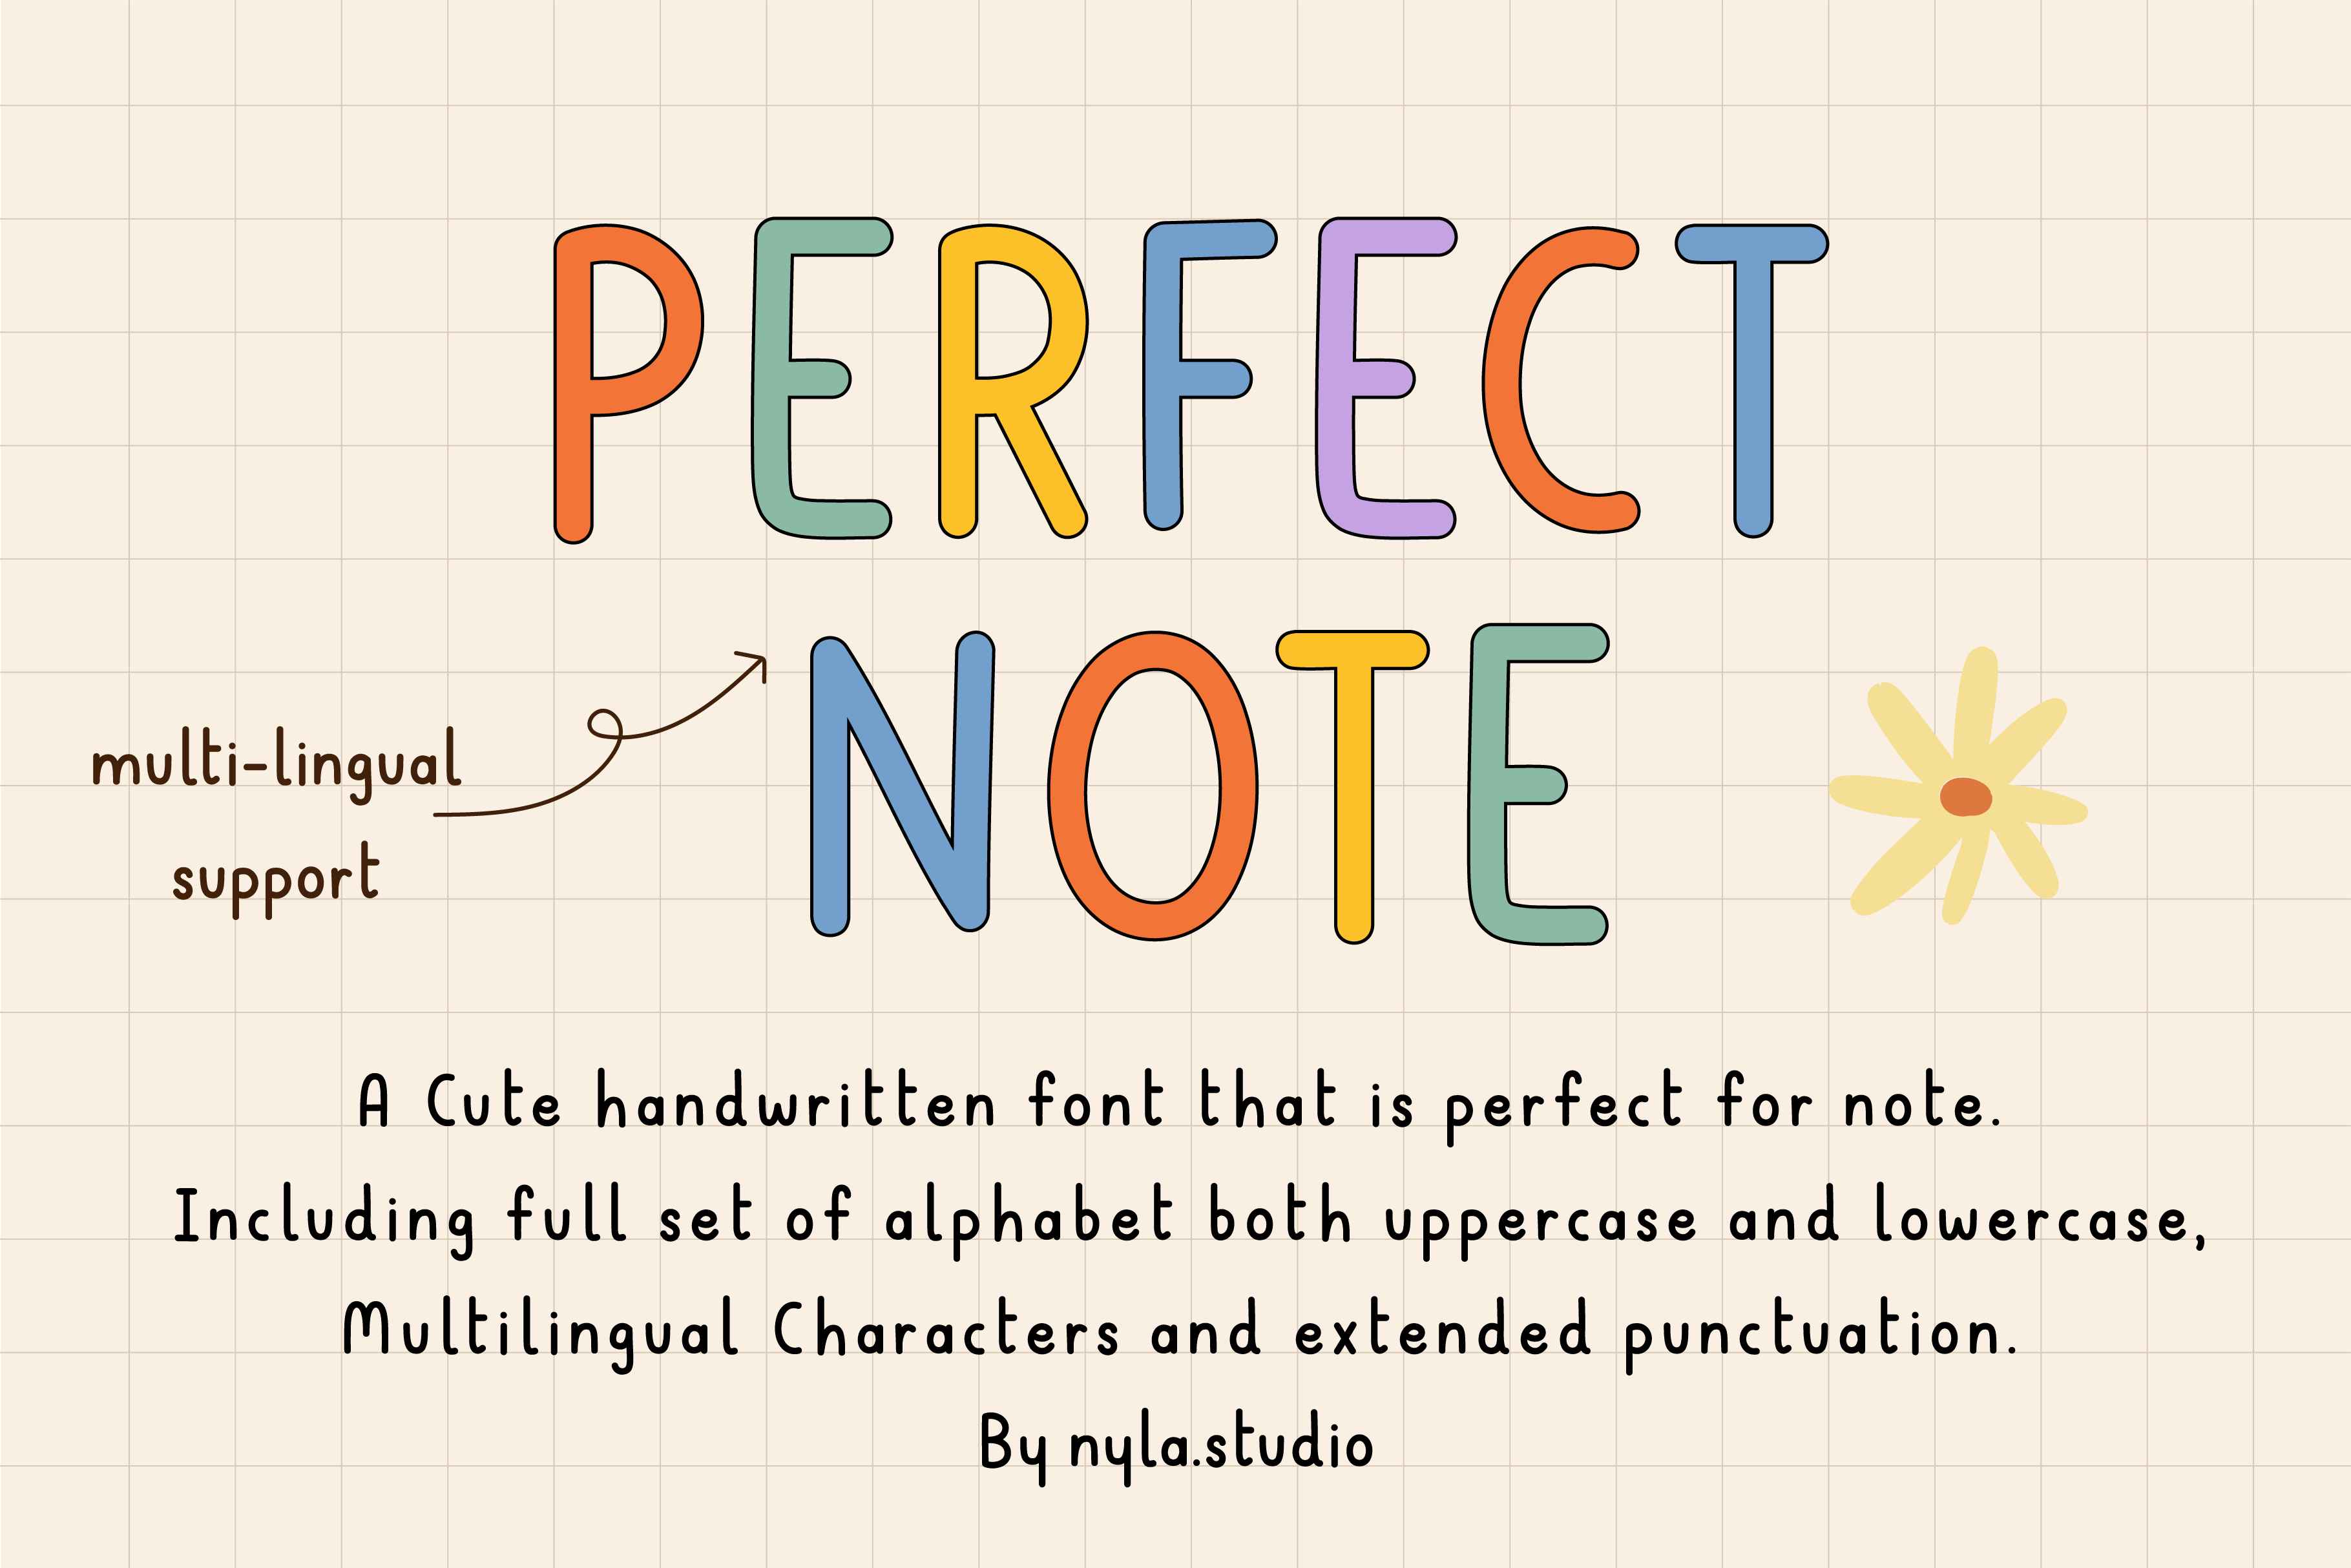 PERFECT
NOTE
multi-lingual
support
A Cute handwritten font that is perfect for note.
Including full set of alphabet both uppercase and lowercase,
Multilingual Characters and extended punctuation.
By nyla.studio